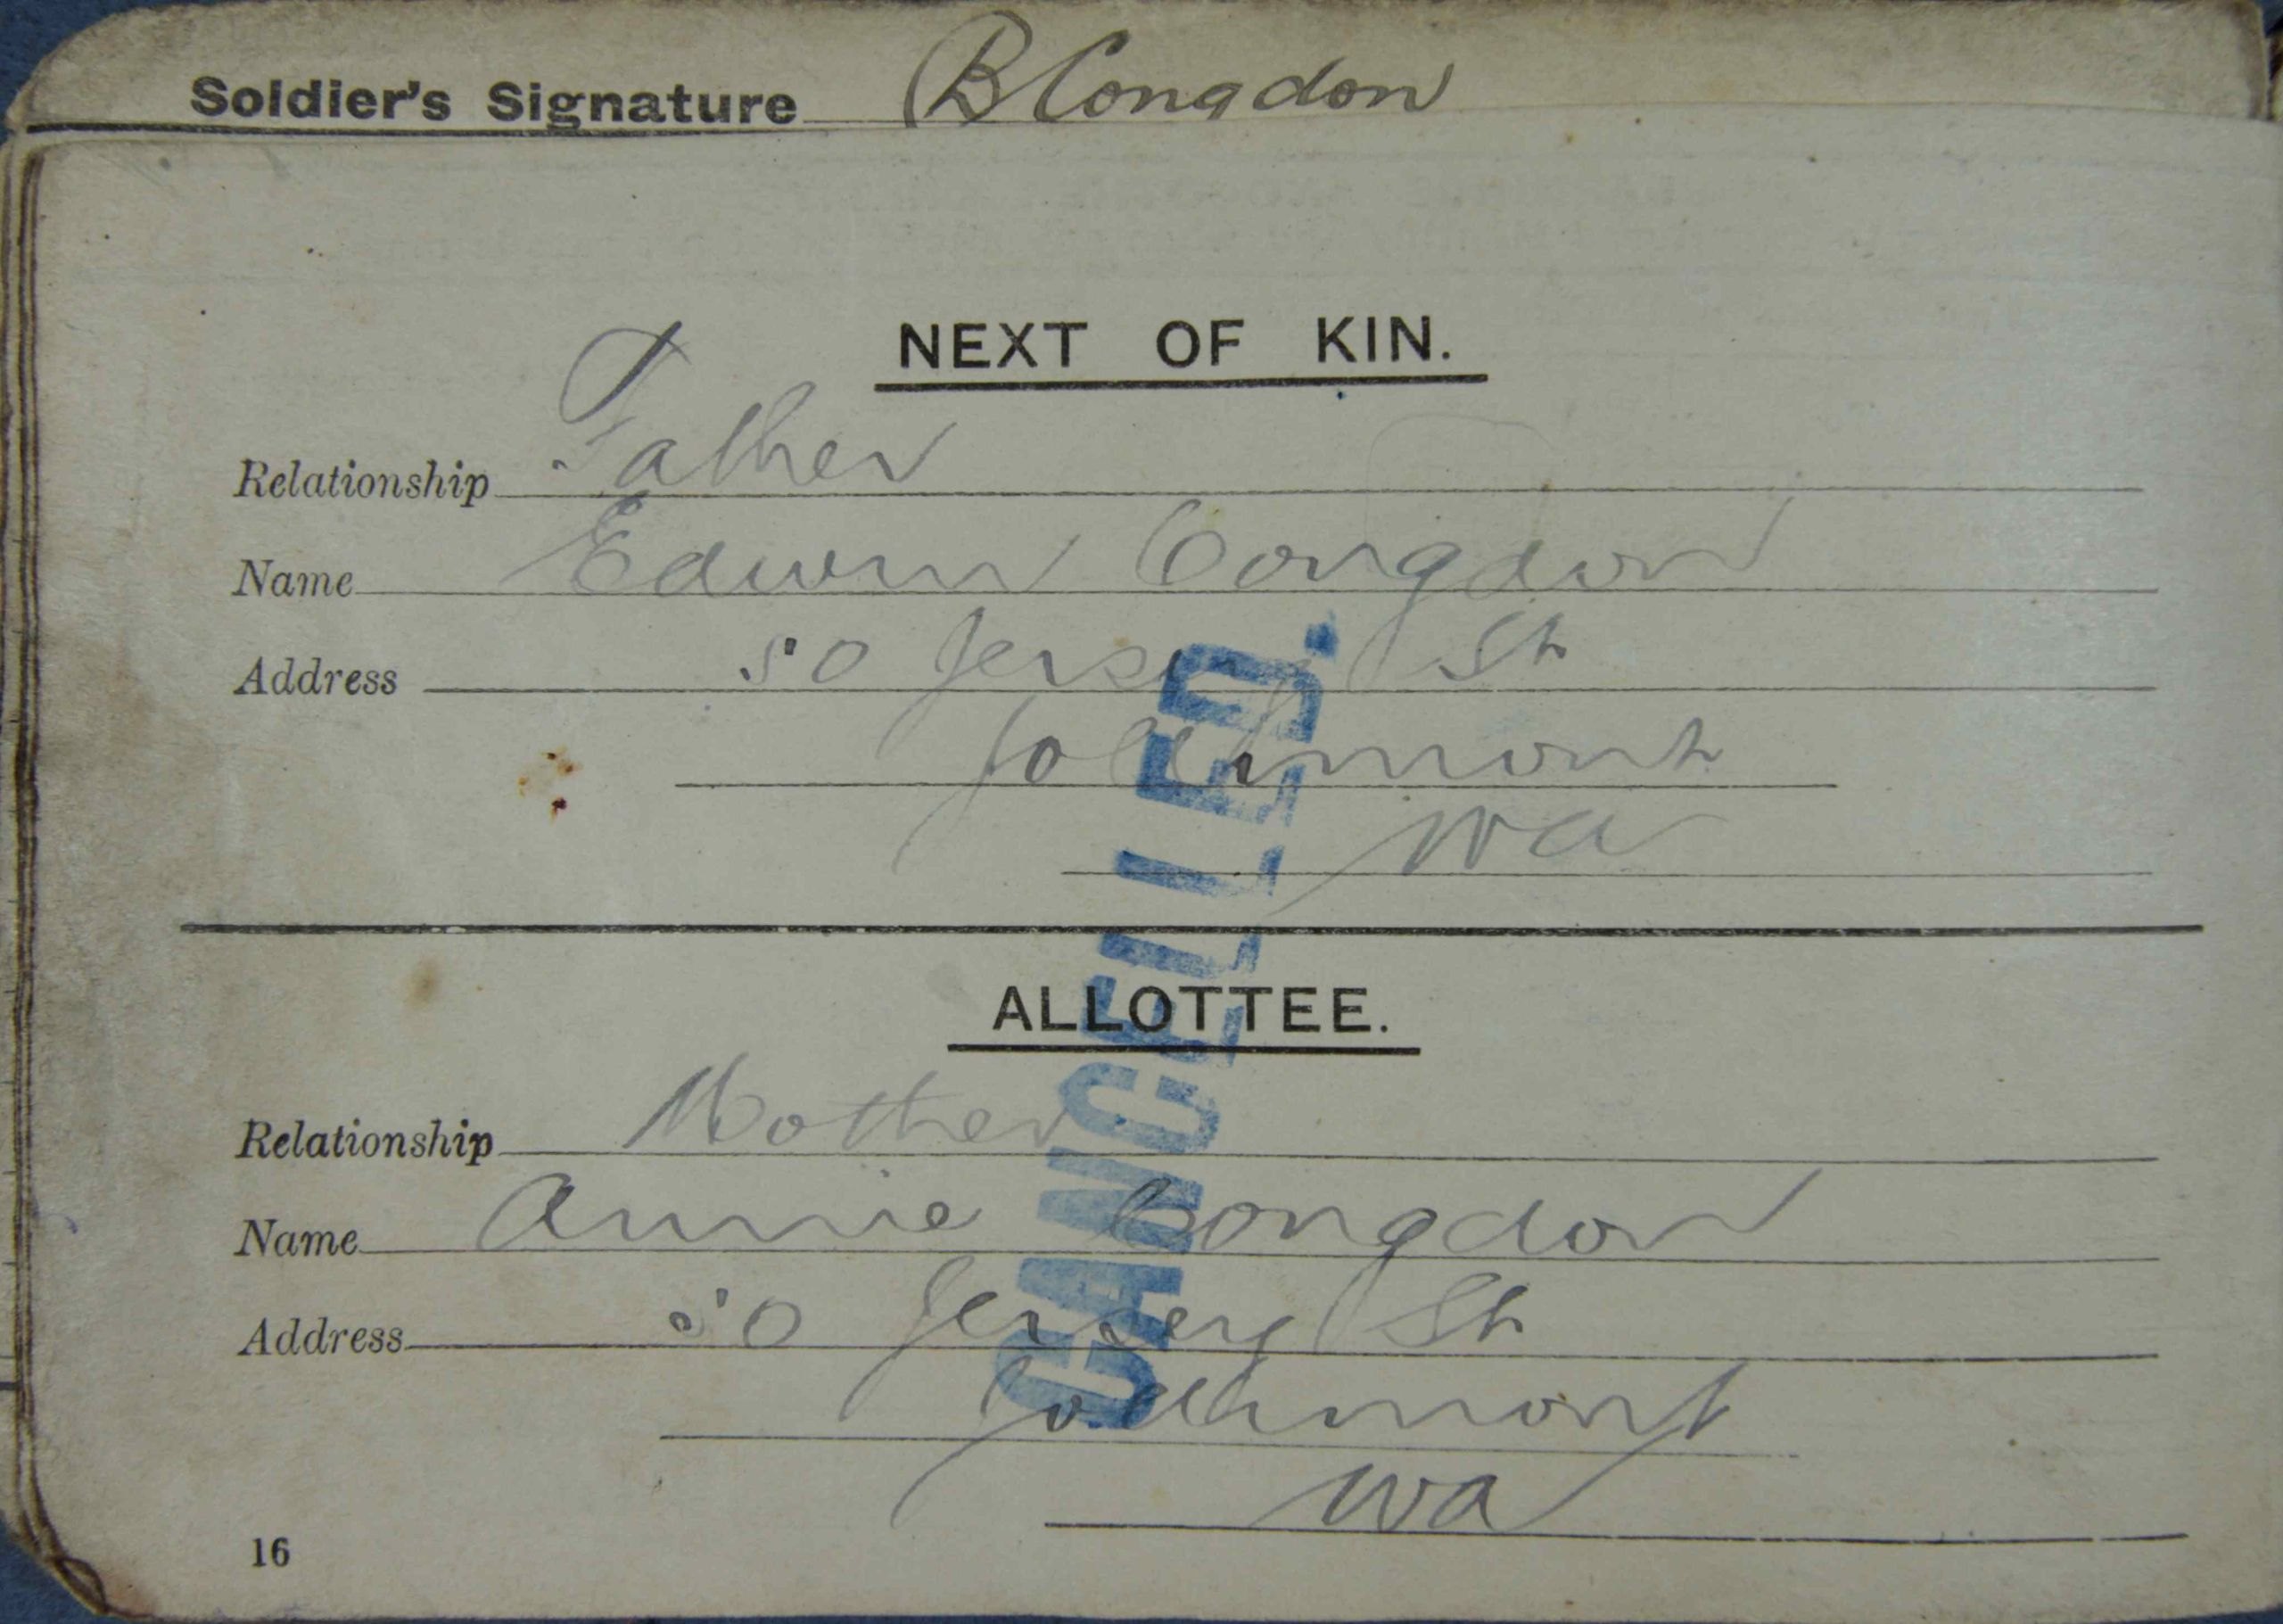 Soldier's Signature B Congdon
NEXT OF KIN.
Relationship Father
Name Edwin Congdon
Address 50 Jersey St
Jollimont
WA
CANCELLED.
ALLOTTEE.
Relationship Mother
Name Annie Congdon
Address 50 Jersey St
Jollimont
WA
16